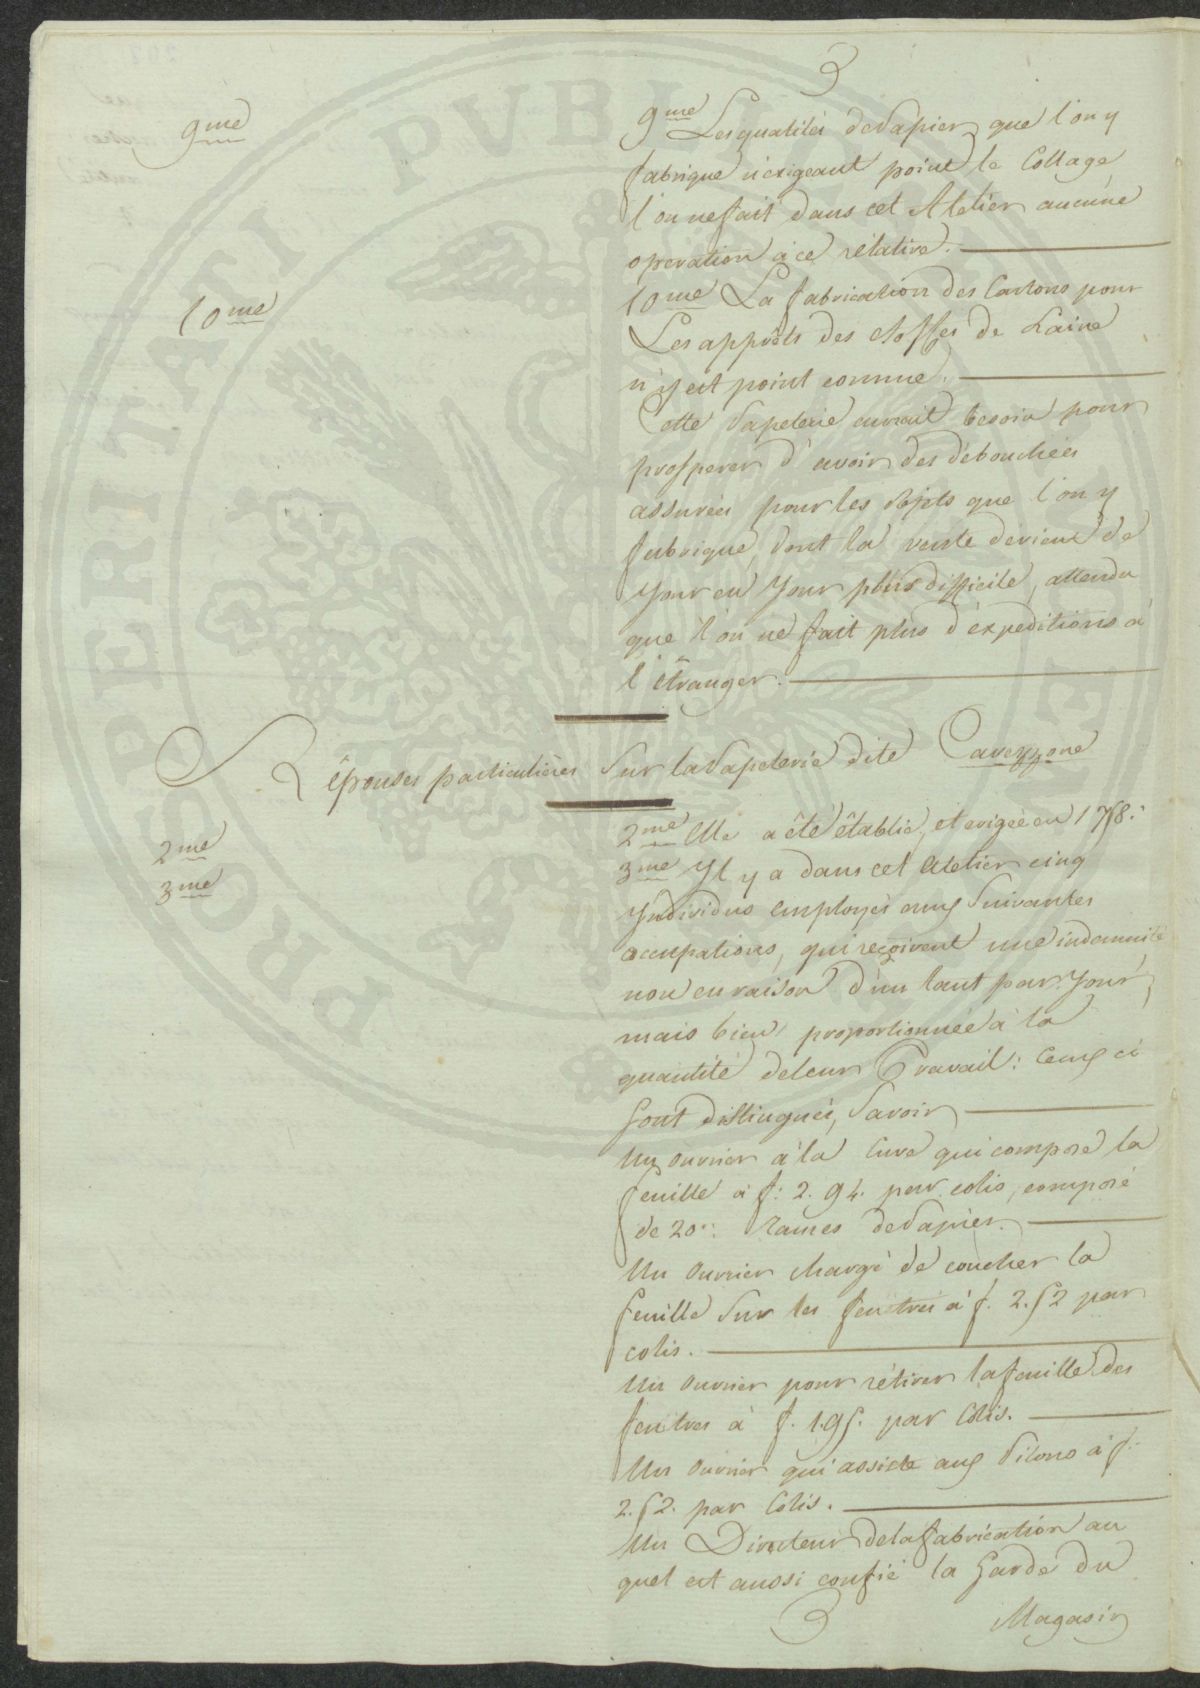 3
9me
9me Les qualités de Papier que l'on y
fabrique n'éxigeant point le Collage,
l'on ne fait dans cet Atelier aucune
operation à ce rélative.
10me
10me La fabrication des Cartons pour
Les apprêts des étoffes de Laine
n'y est point connue.
Cette Papeterie aurait besoin pour
prosperer d'avoir des débouchées
assurées pour les objets que l'on y
fabrique, dont la vente dévient de
Jour en Jour plus difficile, attendu
que l'on ne fait plus d'éxpeditions à
l'étranger.
Réponses particulières Sur la Papeterie dite Cavezzone
2me
2me Elle a été établie, et erigée en
3me
3me Il y a dans cet Atelier cinq
Individus employés aux Suivantes
occupations, qui reçoivent une indemnité
non en raison d'un tant par Jour,
mais bien proportionnée à la
quantité de leur Travail: Ceux ci
Sont distingués, Savoir
Un ouvrier à la Cuve qui compose la
feuille à f: 2. 94. par colis, composé
de 20.: Rames de Papier.
Un Ouvrier chargé de coucher la
feuille Sur les feutres à f. 2.52 par
colis.
Un Ouvrier pour rétirer la feuille des
feutres à f. 1.95. par Colis.
Un Ouvrier qui assiste aux Pilons à f:
2.52. par Colis.
Un Directeur de la fabrication au
quel est aussi confié la Garde du
Magasin
PROSPERITATI PVBLICAE